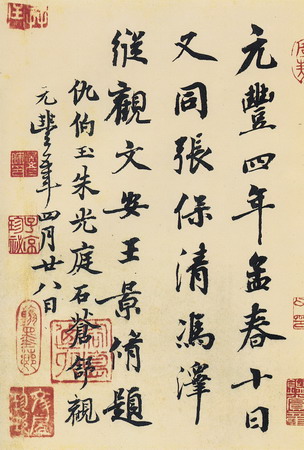 元豐四年孟春十日
又同張保清馮澤
縱觀文安王景脩題
仇伯玉朱光庭石蒼舒觀
元豐年四月廿八日
子京
珍祕